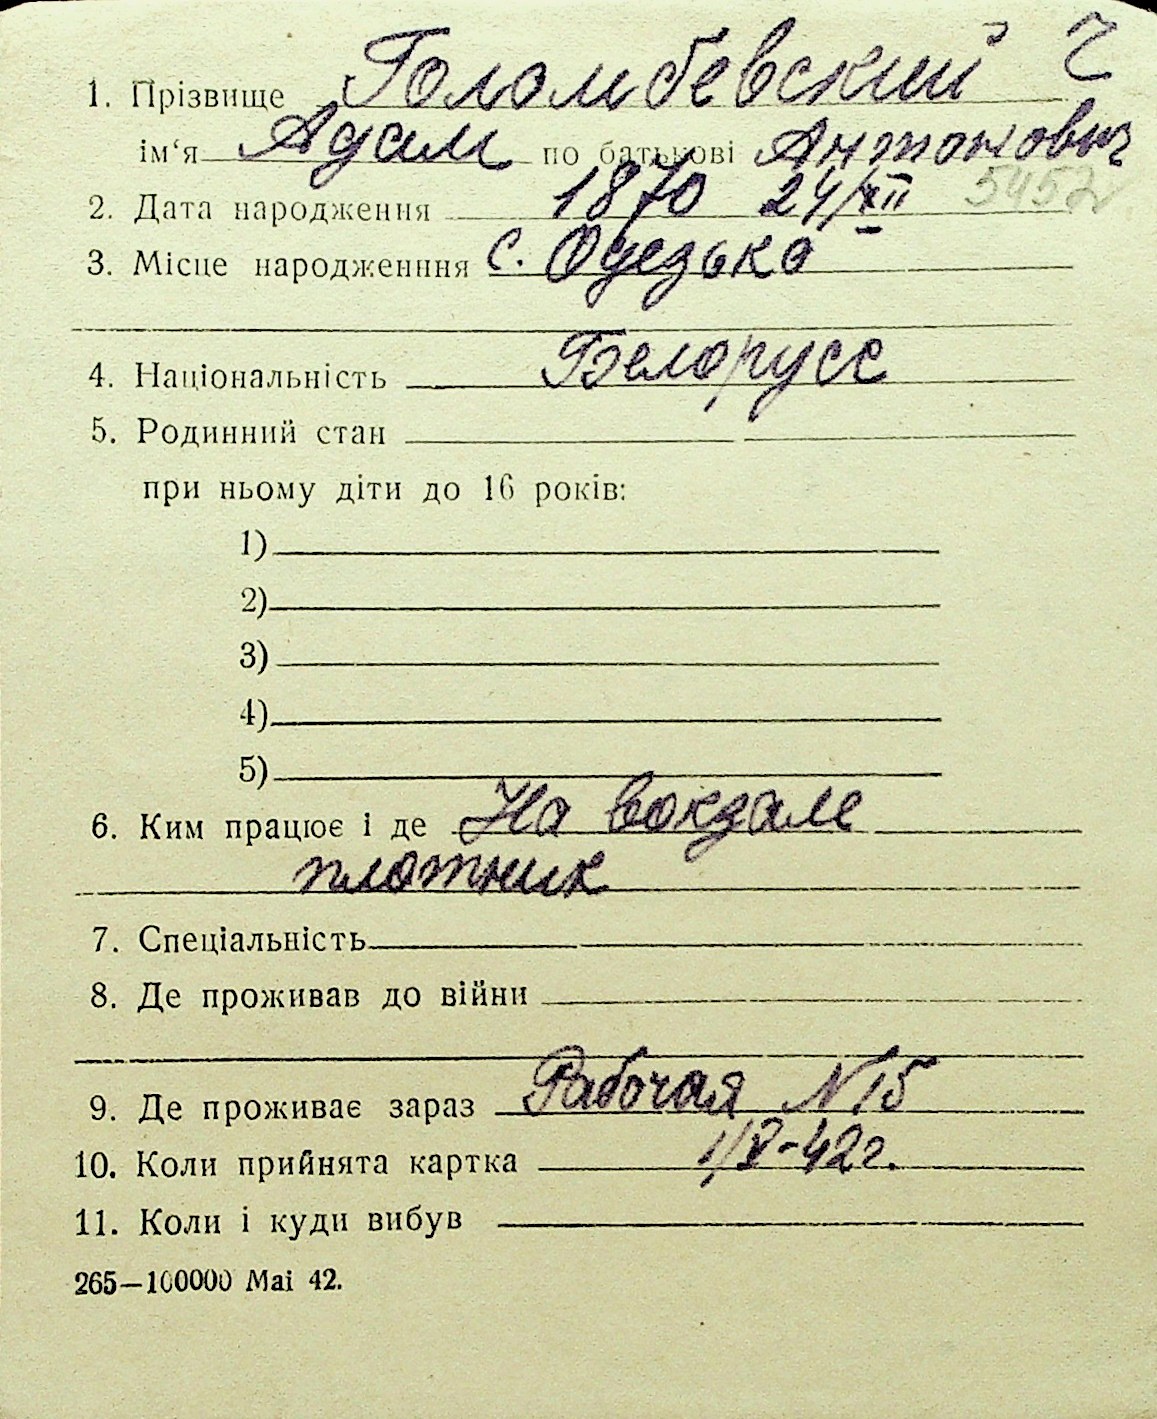 1. Прізвище Голомбевский Г
ім‘я Адам по батькові Антонович
2. Дата народження 1870 24/XII 5452
3. Місце народженння с. Одезько
4. Національність Белорусс
5. Родинний стан
при ньому діти до 16 років:
1)
2)
3)
4)
5)
6. Ким працює і де На вокзале
плотник
7. Спеціальність
8. Де проживав до війни
9. Де проживає зараз Рабочая N 15
10. Коли прийнята картка 1/V-42г.
11. Коли і куди вибув
265—100000 Mai 42.